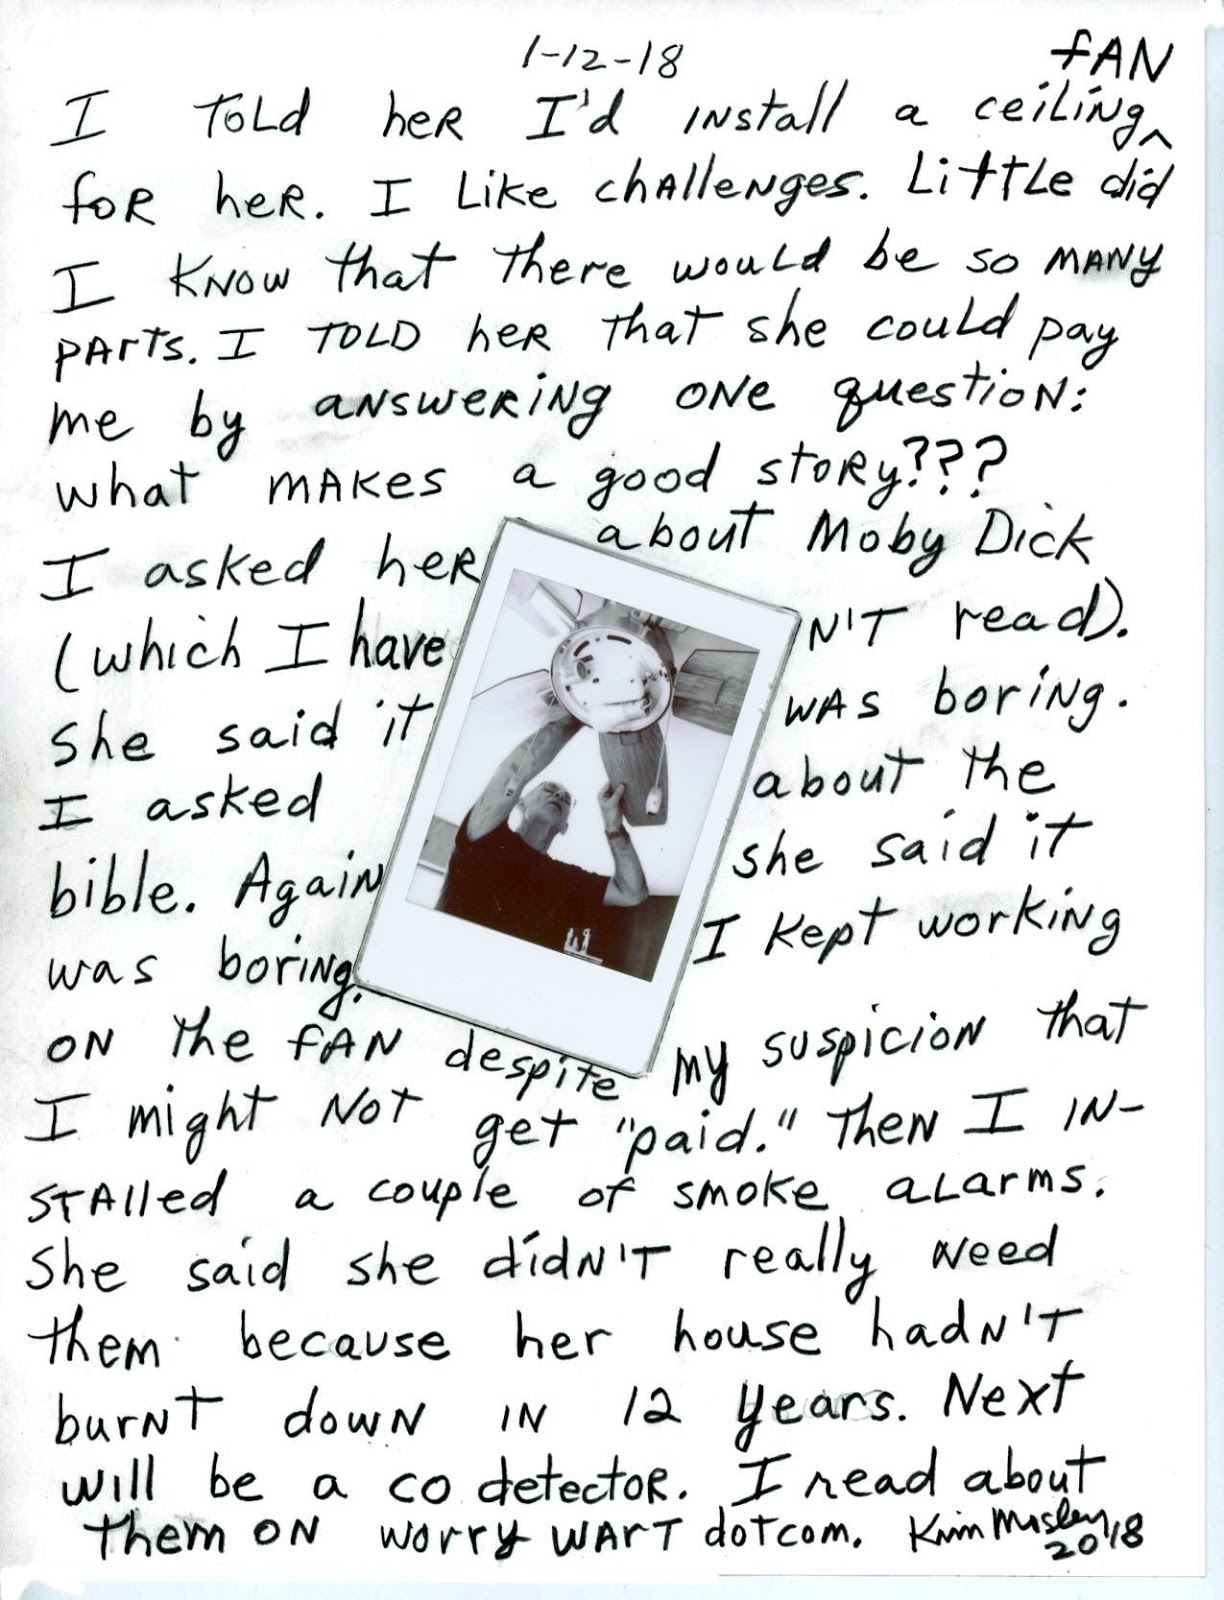 1-12-18
I TOLD heR I'd INstall a ceiLiNg ^ fAN
foR heR. I Like chAlleNges. LittLe did
I KNOW that there wouLd be so MANY
PARTs. I TOLD heR that she couLd pay
me by aNsweRiNg ONe questioN:
what mAKes a good stoRy???
I asked heR about Moby Dick
(which I haveN'T read).
she said it wAs boriNg.
I asked about the
bible. AgaiN she said it
was boriNg. I Kept workiNg
ON the fAN despite my suspicioN that
I might NoT get "paid." TheN I IN-
STAlled a couple of smoke aLarms.
She said she didN'T really Need
them because her house hadN'T
burNT dowN IN 12 years. Next
will be a CO detectoR. I read about
them ON worry WART dotcom. Kim Mosley
2018